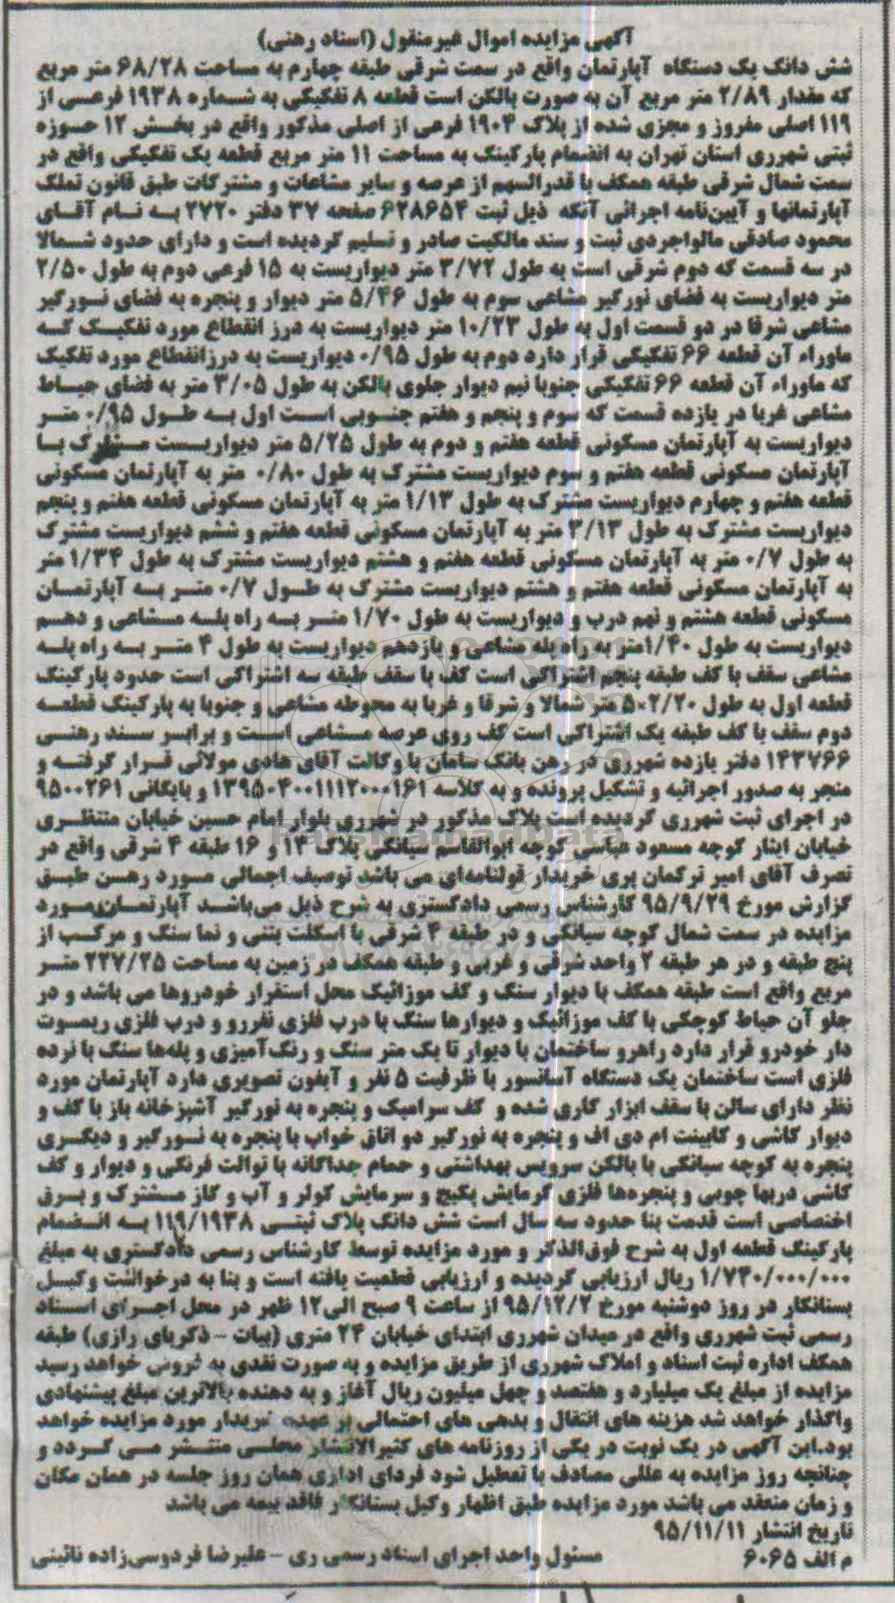 آگهی مزایده اموال غیرمنقول (اسناد رهنی)
شش دانگ یک دستگاه آپارتمان واقع در سمت شرقی طبقه چهارم به مساحت ۶۸/۲۸ متر مربع
که مقدار ۲/۸۹ متر مربع آن به صورت بالکن است قطعه ۸ تفکیکی به شماره ۱۹۳۸ فرعی از
۱۱۹ اصلی مفروز و مجزی شده از پلاک ۱۹۰۴ فرعی از اصلی مذکور واقع در بخش ۱۲ حوزه
ثبتی شهرری استان تهران به انضمام پارکینگ به مساحت ۱۱ متر مربع قطعه یک تفکیکی واقع در
سمت شمال شرقی طبقه همکف با قدرالسهم از عرصه و سایر مشاعات و مشترکات طبق قانون تملک
آپارتمانها و آیین‌نامه اجرائی آنکه ذیل ثبت ۶۲۸۶۵۴ صفحه ۳۷ دفتر ۲۷۲۰ به نام آقای
محمود صادقی مالواجردی ثبت و سند مالکیت صادر و تسلیم گردیده است و دارای حدود شمالا
در سه قسمت که دوم شرقی است به طول ۳/۷۲ متر دیواریست به ۱۵ فرعی دوم به طول ۲/۵۰
متر دیواریست به فضای نورگیر مشاعی سوم به طول ۵/۴۶ متر دیوار و پنجره به فضای نورگیر
مشاعی شرقا در دو قسمت اول به طول ۱۰/۲۳ متر دیواریست به درز انقطاع مورد تفکیک که
ماوراء آن قطعه ۶۶ تفکیکی قرار دارد دوم به طول ۰/۹۵ دیواریست به درزانقطاع مورد تفکیک
که ماوراء آن قطعه ۶۶ تفکیکی جنوبا نیم دیوار جلوی بالکن به طول ۳/۰۵ متر به فضای حیاط
مشاعی غربا در یازده قسمت که سوم و پنجم و هفتم جنوبی است اول به طول ۰/۹۵ متر
دیواریست به آپارتمان مسکونی قطعه هفتم و دوم به طول ۵/۲۵ متر دیواریست مشترک با
آپارتمان مسکونی قطعه هفتم و سوم دیواریست مشترک به طول ۰/۸۰ متر به آپارتمان مسکونی
قطعه هفتم و چهارم دیواریست مشترک به طول ۱/۱۳ متر به آپارتمان مسکونی قطعه هفتم و پنجم
دیواریست مشترک به طول ۳/۱۳ متر به آپارتمان مسکونی قطعه هفتم و ششم دیواریست مشترک
به طول ۰/۷ متر به آپارتمان مسکونی قطعه هفتم و هشتم دیواریست مشترک به طول ۱/۳۴ متر
به آپارتمان مسکونی قطعه هفتم و هشتم دیواریست مشترک به طول ۰/۷ متر به آپارتمان
مسکونی قطعه هشتم و نهم درب و دیواریست به طول ۱/۷۰ متر به راه پله مشاعی و دهم
دیواریست به طول ۱/۴۰متر به راه پله مشاعی و یازدهم دیواریست به طول ۴ متر به راه پله
مشاعی سقف با کف طبقه پنجم اشتراکی است کف با سقف طبقه سه اشتراکی است حدود پارکینگ
قطعه اول به طول ۵×۲/۲۰ متر شمالا و شرقا و غربا به محوطه مشاعی و جنوبا به پارکینگ قطعه
دوم سقف با کف طبقه یک اشتراکی است کف روی عرصه مشاعی است و برابر سند رهنی
۱۴۳۷۶۶ دفتر یازده شهرری در رهن بانک سامان با وکالت آقای هادی مولائی قرار گرفته و
منجر به صدور اجرائیه و تشکیل پرونده و به کلاسه ۱۳۹۵۰۴۰۰۱۱۱۲۰۰۰۱۶۱ و بایگانی ۹۵۰۰۲۶۱
در اجرای ثبت شهرری گردیده است پلاک مذکور در شهرری بلوار امام حسین خیابان منتظری
خیابان ایثار کوچه مسعود عباسی کوچه ابوالقاسم سیانکی پلاک ۱۴ و ۱۶ طبقه ۴ شرقی واقع در
تصرف آقای امیر ترکمان پری خریدار قولنامه‌ای می باشد توصیف اجمالی مورد رهن طبق
گزارش مورخ ۹۵/۹/۲۹ کارشناس رسمی دادگستری به شرح ذیل می‌باشد آپارتمان مورد
مزایده در سمت شمال کوچه سیانکی و در طبقه ۴ شرقی با اسکلت بتنی و نما سنگ و مرکب از
پنج طبقه و در هر طبقه ۲ واحد شرقی و غربی و طبقه همکف در زمین به مساحت ۲۲۷/۲۵ متر
مربع واقع است طبقه همکف با دیوار سنگ و کف موزائیک محل استقرار خودروها می باشد و در
جلو آن حیاط کوچکی با کف موزائیک و دیوارها سنگ با درب فلزی نفررو و درب فلزی ریموت
دار خودرو قرار دارد راهرو ساختمان با دیوار تا یک متر سنگ و رنگ‌آمیزی و پله‌ها سنگ با نرده
فلزی است ساختمان یک دستگاه آسانسور با ظرفیت ۵ نفر و آیفون تصویری دارد آپارتمان مورد
نظر دارای سالن با سقف ابزار کاری شده و کف سرامیک و پنجره به نورگیر آشپزخانه باز با کف و
دیوار کاشی و کابینت ام دی اف و پنجره به نورگیر دو اتاق خواب با پنجره به نورگیر و دیگری
پنجره به کوچه سیانکی با بالکن سرویس بهداشتی و حمام جداگانه با توالت فرنگی و دیوار و کف
کاشی دربها چوبی و پنجره‌ها فلزی گرمایش پکیج و سرمایش کولر و آب و گاز مشترک و برق
اختصاصی است قدمت بنا حدود سه سال است شش دانگ پلاک ثبتی ۱۱۹/۱۹۳۸ به انضمام
پارکینگ قطعه اول به شرح فوق‌الذکر و مورد مزایده توسط کارشناس رسمی دادگستری به مبلغ
۱/۷۴۰/۰۰۰/۰۰۰ ریال ارزیابی گردیده و ارزیابی قطعیت یافته است و بنا به درخواست وکیل
بستانکار در روز دوشنبه مورخ ۹۵/۱۲/۲ از ساعت ۹ صبح الی۱۲ ظهر در محل اجرای اسناد
رسمی ثبت شهرری واقع در میدان شهرری ابتدای خیابان ۲۴ متری (بیات - ذکریای رازی) طبقه
همکف اداره ثبت اسناد و املاک شهرری از طریق مزایده و به صورت نقدی به فروش خواهد رسید
مزایده از مبلغ یک میلیارد و هفتصد و چهل میلیون ریال آغاز و به دهنده بالاترین مبلغ پیشنهادی
واگذار خواهد شد هزینه های انتقال و بدهی های احتمالی بر عهده خریدار مورد مزایده خواهد
بود.این آگهی در یک نوبت در یکی از روزنامه های کثیرالانتشار محلی منتشر می گردد و
چنانچه روز مزایده به عللی مصادف با تعطیل شود فردای اداری همان روز جلسه در همان مکان
و زمان منعقد می باشد مورد مزایده طبق اظهار وکیل بستانکار فاقد بیمه می باشد
تاریخ انتشار ۹۵/۱۱/۱۱
م الف ۶۰۶۵ مسئول واحد اجرای اسناد رسمی ری - علیرضا فردوسی‌زاده نائینی